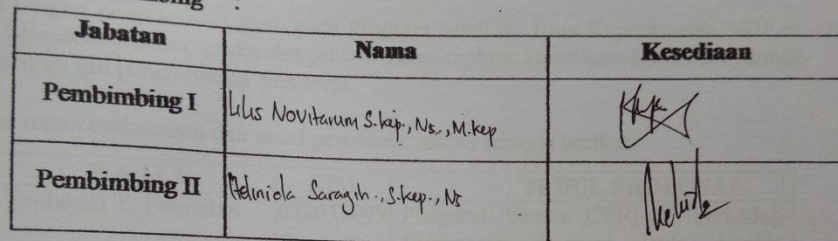 Jabatan Nama Kesediaan
Pembimbing I Lilis Novitarum S.kep., Ns., M.kep
Pembimbing II Helinida Saragih., S.kep., Ns